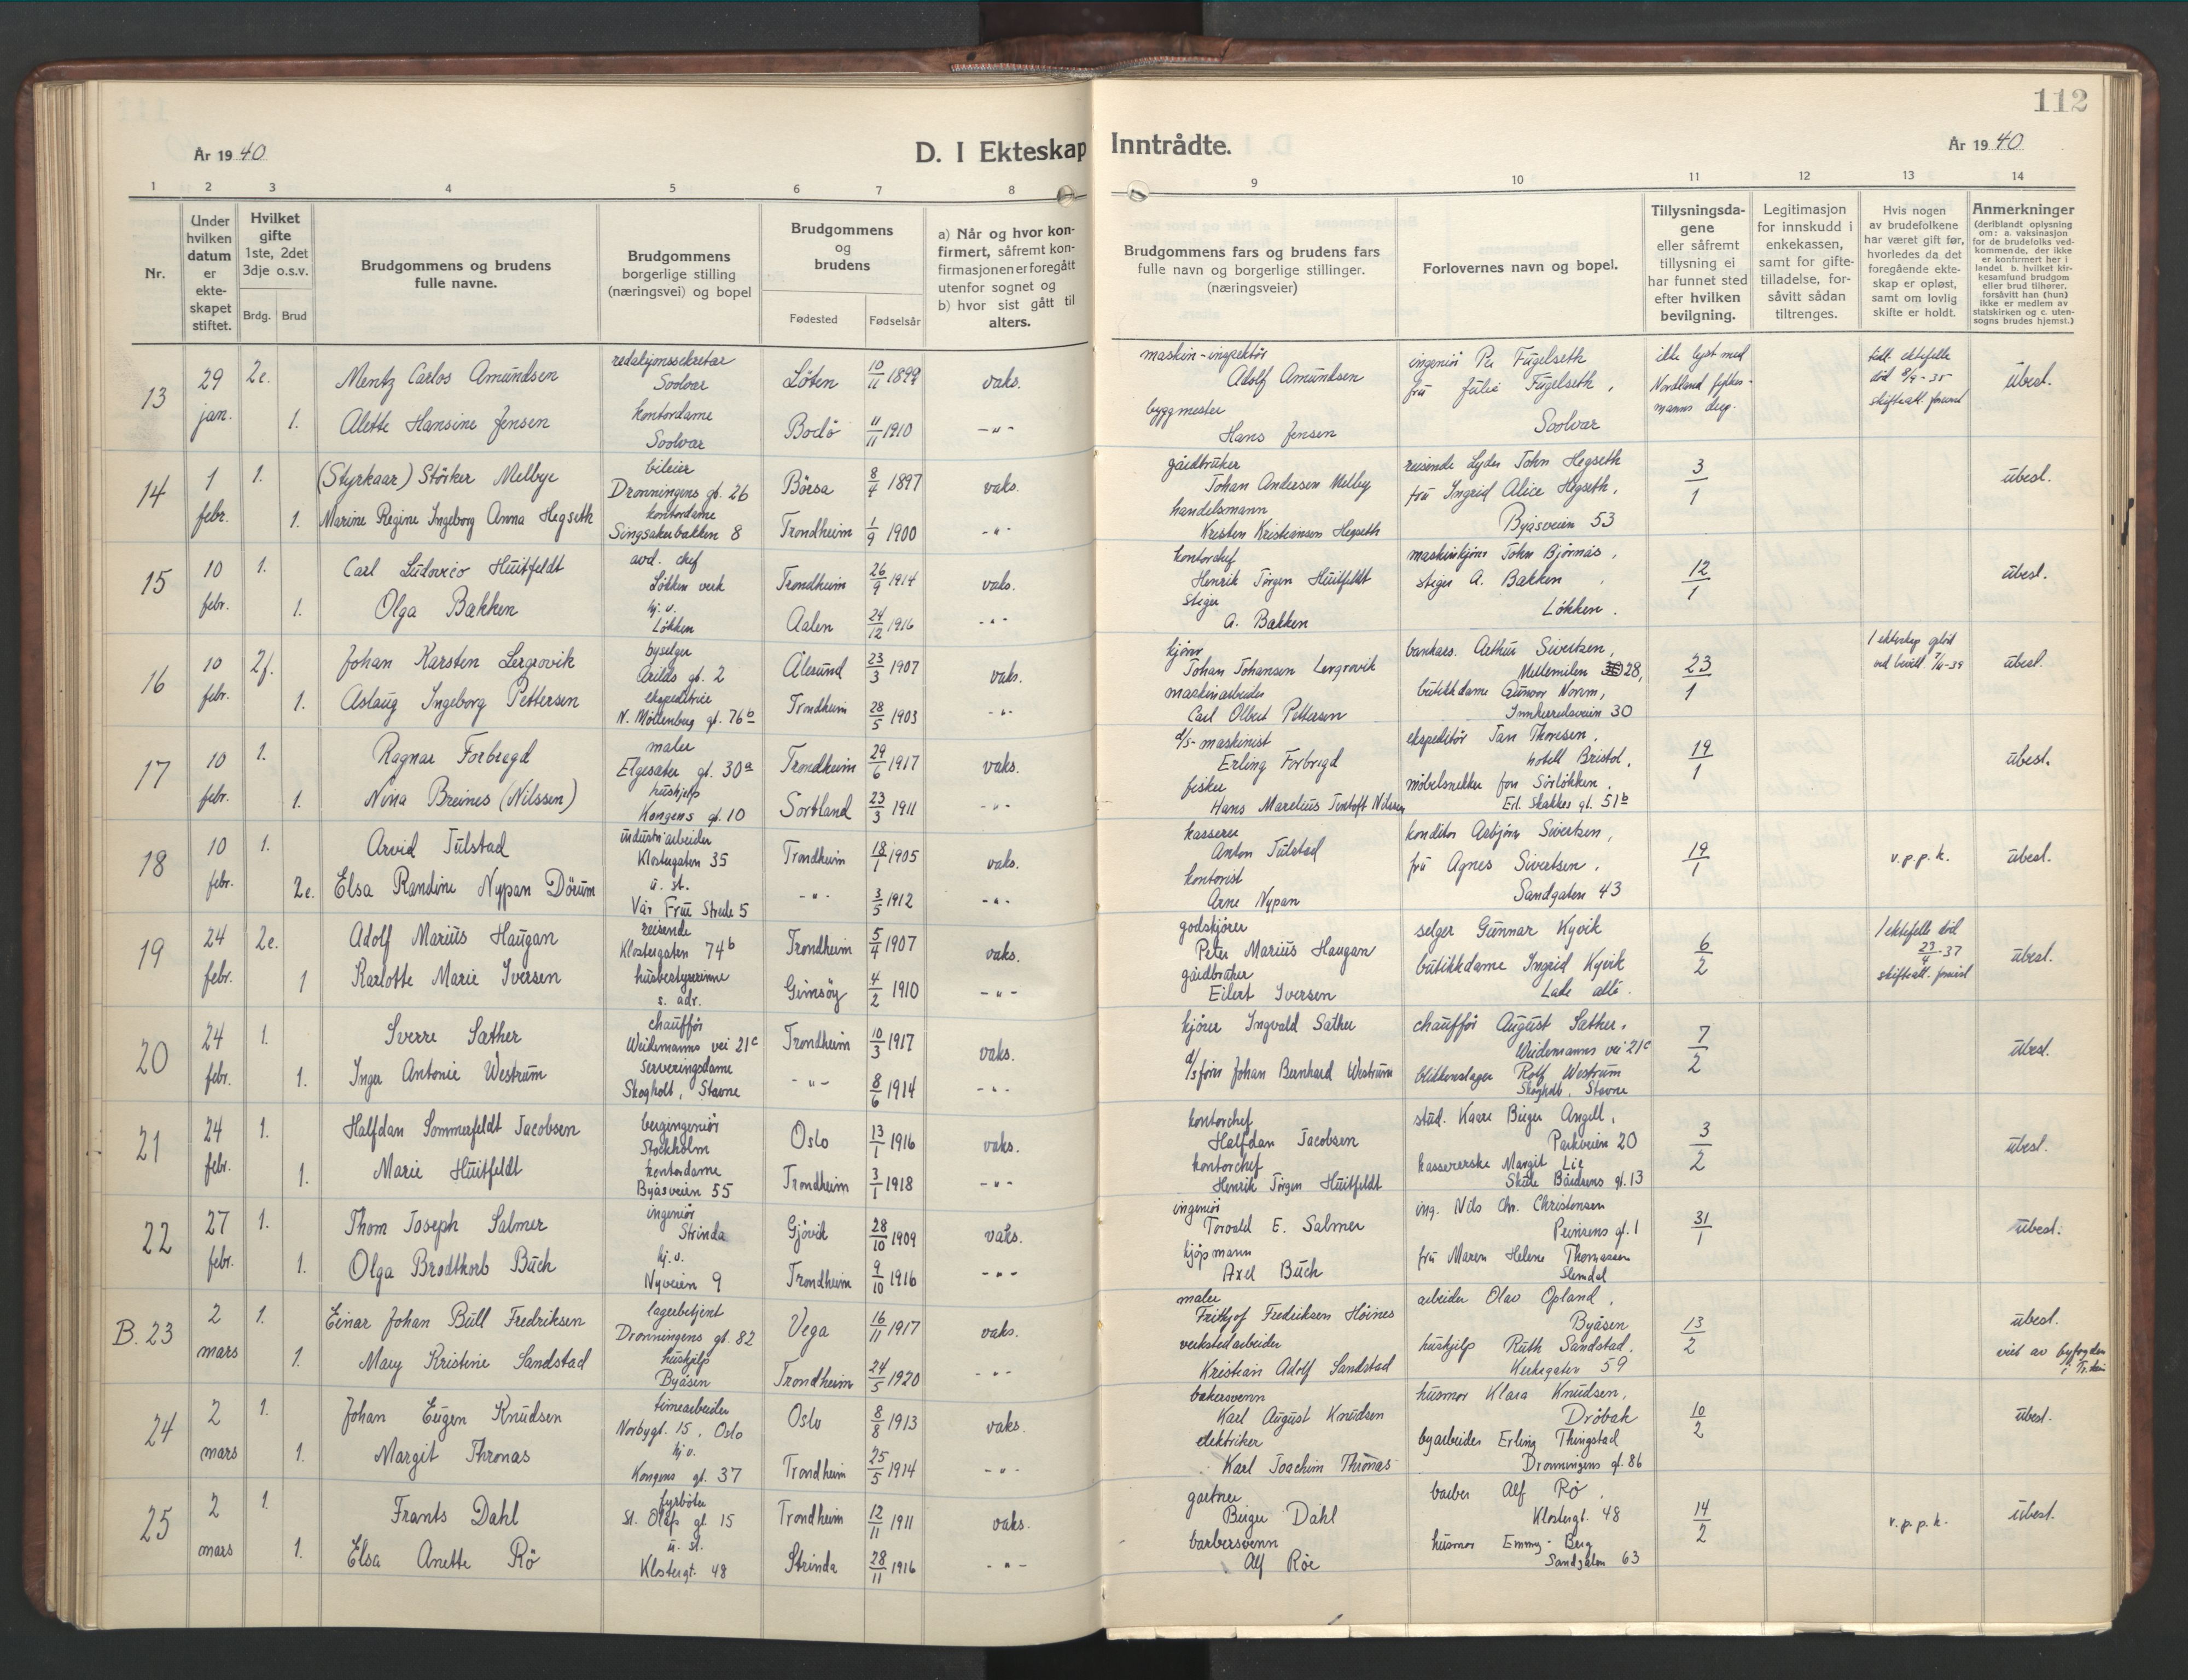 112
År 1940
D. I Ekteskap Inntrådte.
År 1940
1 2 3 4 5 6 7 8 9 10 11 12 13 14
Nr.
Under hvilken datum er ekteskapet stiftet.
Hvilket gifte 1ste, 2det 3dje o.s.v.
Brdg. Brud
Brudgommens og brudens fulle navne.
Brudgommens borgerlige stilling (næringsvei) og bopel
Brudgommens og brudens
Fødested Fødselsår
a) Når og hvor konfirmert, såfremt konfirmasjonen er foregått utenfor sognet og b) hvor sist gått til alters.
Brudgommens fars og brudens fars fulle navn og borgerlige stillinger. (næringsveier)
Forlovernes navn og bopel.
Tillysningsdagene eller såfremt tillysning ei har funnet sted efter hvilken bevilgning.
Legitimasjon for innskudd i enkekassen, samt for giftetilladelse, forsåvitt sådan tiltrenges.
Hvis nogen av brudefolkene har været gift før, hvorledes da det foregående ekteskap er opløst, samt om lovlig skifte er holdt.
Anmerkninger (deriblandt oplysning om: a. vaksinasjon for de brudefolks vedkommende, der ikke er konfirmert her i landet b. hvilket kirkesamfund brudgom eller brud tilhører, forsåvitt han (hun) ikke er medlem av statskirken og c. utensogns brudes hjemst.)
13 29 jan. 2e. Mentz Carlos Amundsen redaksjonssekretær Svolvær Løten 10/11 1899 vaks. maskin-inspektör Adolf Amundsen ingeniör Per Fugelseth frü Julie Fugelseth, Svolvær ikke lyst med Nordland fylkesmanns disp. tidl. ektefelle död 8/9-35 skifteatt. forevist übest.
1. Alette Hansine Jensen kontordame Svolvær Bodö 11/11 1910 -"- byggmester Hans Jensen
14 1 febr. 1. (Styrkaar) Störker Melbye bileier Dronningens gt. 26 Börsa 8/4 1897 vaks. gårdbruker Johan Andersen Melby reisende Lyder John Hegseth frü Ingrid Alice Hegseth, Byåsveien 53 3/1 übest.
1. Marine Regine Ingeborg Anna Hegseth kontordame Singsakerbakken 8 Trondheim 1/9 1900 -"- handelsmann Kristen Kristiansen Hegseth
15 10 febr. 1. Carl Ludovico Huitfeldt avd. chef Løkken verk Trondheim 26/9 1914 vaks. kontorchef Henrik Jörgen Huitfeldt maskinkjörer John Björnås, stiger A. Bakken, Løkken. 12/1 übest.
1. Olga Bakken hj.v. Løkken Aalen 24/12 1916 -"- stiger A. Bakken
16 10 febr. 2f. Johan Karsten Lergrovik byselger Arilds gt. 2 Ålesund 23/3 1907 vaks. kjörer Johan Johansen Lergrovik bankass. Arthur Sivertsen, Mellemilen 28, butikkdame Gunvor Norem, Innherredsveien 30 23/1 1 ekteskap oplöst ved bevill. 7/11-39 übest.
1. Aslaug Ingeborg Pettersen ekspeditrice N. Möllenberg gt. 76b Trondheim 28/5 1903 -"- maskinarbeider Carl Olbert Pettersen
17 10 febr. 1. Ragnar Forbregd maler Elgesæter gt. 30a Trondheim 29/6 1917 vaks. d/s-maskinist Erling Forbregd ekspeditör Jan Thoresen, hotell Bristol, möbelsnekker Jon Sörlökken, Erl. Skakkes gt. 51b 19/1 übest.
1. Nina Breines (Nilssen) hushjelp Kongens gt. 10 Sortland 23/3 1911 -"- fisker Hans Marelius Nilssen
18 10 febr. 1. Arvid Tulstad industriarbeider Klostergaten 35 Trondheim 18/1 1905 vaks. kasserer Anton Tulstad konditor Asbjörn Sivertsen, frü Agnes Sivertsen, Sandgaten 43 19/1 v.p.p.k. übest.
2e. Elsa Randine Nypan Dörum u. st. Vår Frue Strede 5 -"- 3/5 1912 -"- kontorist Arne Nypan
19 24 febr. 2e. Adolf Marius Haugan reisende Klostergaten 74b Trondheim 5/4 1907 vaks. godskjörer Peter Marius Haugan selger Gunnar Kyvik butikkdame Ingrid Kyvik Lade allé. 6/2 1 ektefelle död 23/4-37 skifteatt. forevist übest.
1 Karlotte Marie Iversen husbestyrerinne s. adr. Gimsöy 4/2 1910 -"- gårdbruker Eilert Iversen
20 24 febr. 1. Sverre Sæther chauffør Weidemanns vei 21c Trondheim 10/3 1917 vaks. kjörer Ingvald Sæther chauffør August Sæther, Weidemanns vei 21c blikkenslager Rolf Westrum Skogholt, Stavne 7/2 übest.
1. Inger Antonie Westrum Serveringsdame Skogholt, Stavne -"- 8/6 1914 -"- d/s förer Johan Bernhard Westrum
21 24 febr. 1. Halfdan Sommerfeldt Jacobsen bergingeniör Stockholm Oslo 13/1 1916 vaks. kontorchef Halfdan Jacobsen stud. Kaare Birger Angell, Parkveien 20 kassererske Margit Lie Skule Bårdsens gt. 13 3/2 übest.
1. Marie Huitfeldt kontordame Byåsveien 55 Trondheim 3/1 1918 -"- kontorchef Henrik Jörgen Huitfeldt
22 27 febr. 1. Thom Joseph Salmer ingeniör Strinda Gjövik 28/10 1909 vaks. ingeniör Torvald E. Salmer ing. Nils Chr. Christensen Prinsens gt. 1 frü Maren Helene Thomassen Slemdal 31/1 übest.
1. Olga Brodtkorb Buch hj.v. Nyveien 9 Trondheim 9/10 1916 -"- kjöpmann Axel Buch
B. 23 2 mars 1. Einar Johan Bull Fredriksen lagerbetjent Dronningens gt. 82 Vega 16/11 1917 vaks. maler Frithjof Fredriksen Höines arbeider Olav Opland, Byåsen hushjelp Ruth Sandstad, Kirkegaten 59 13/2 übest. viet av byfogden i Tr.heim
1. Mary Kristine Sandstad hushjelp Byåsen Trondheim 24/5 1920 -"- verkstedarbeider Kristian Adolf Sandstad
24 2 mars 1. Johan Eugen Knudsen timearbeider Norbygt. 15, Oslo Oslo 8/8 1913 vaks. bakersvenn Karl August Knudsen husmor Klara Knudsen, Dröbak byarbeider Erling Thingstad Dronningens gt. 86 10/2 übest.
1. Margit Thronas hj.v. Kongens gt. 37 Trondheim 25/5 1914 -"- elektriker Karl Joachim Thronas
25 2 mars 1. Frants Dahl fyrböter St. Olafs gt. 15 Trondheim 12/11 1911 vaks. gartner Birger Dahl barber Alf Rö, Klostergt. 48 husmor Emmy Berg Sandgaten 63 14/2 v.p.p.k. übest.
1. Elsa Anette Rö u. st. Klostergt. 48 Strinda 28/11 1916 -"- barbersvenn Alf Röe